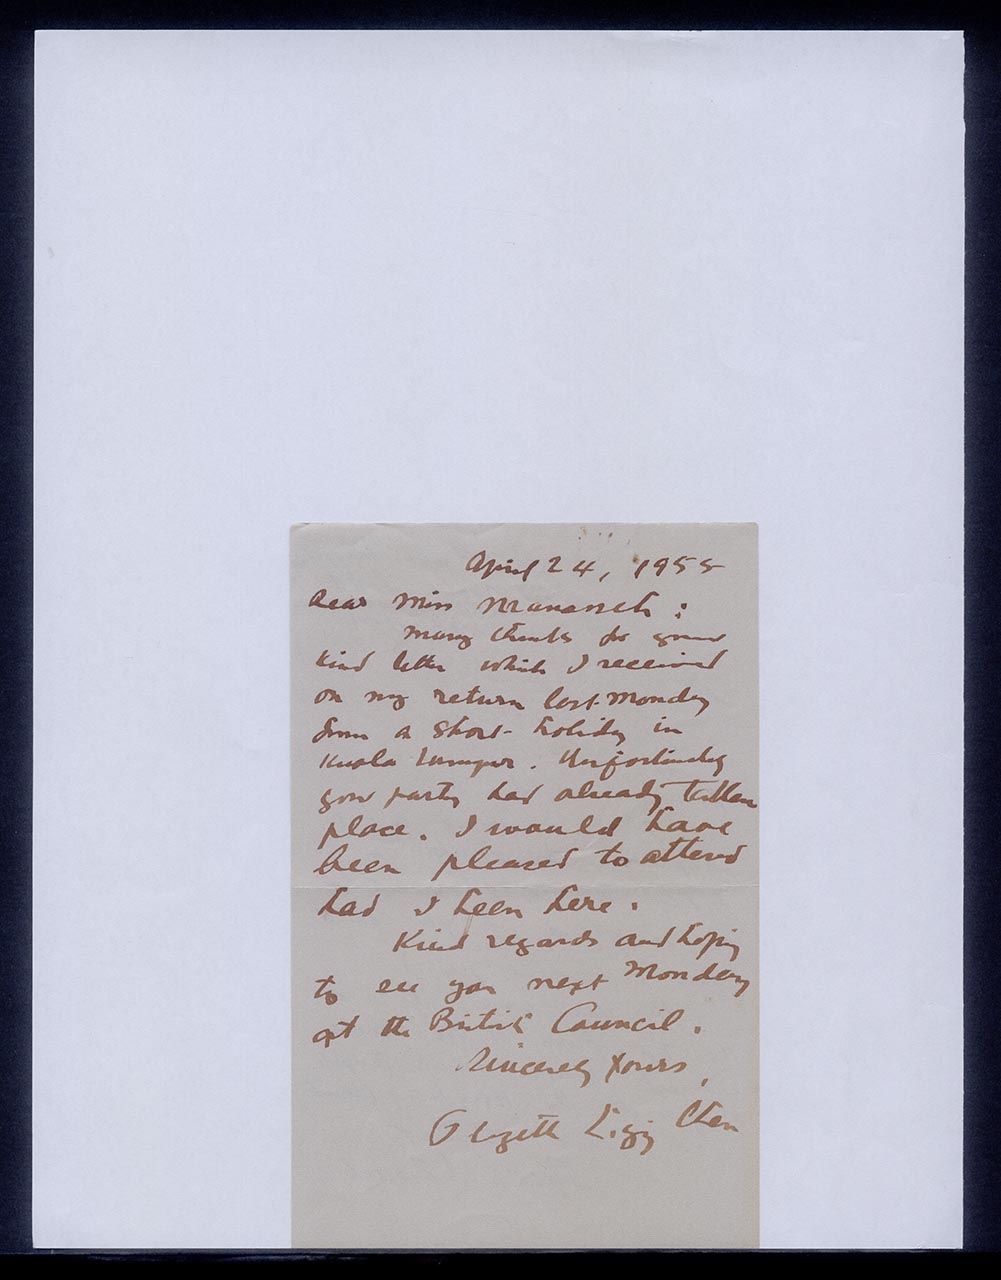 April 24, 1955
Dear Miss Manasseh :
Many thanks for your
kind letter which I received
on my return last Monday
from a short holiday in
Kuala Lumpur. Unfortunately
your party had already taken
place. I would have
been pleased to attend
had I been here.
Kind regards and hoping
to see you next Monday
at the British Council.
Sincerely Yours,
Chen